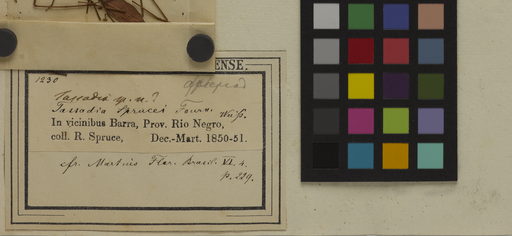 ENSE.
1230
Asclepiad
Tassadia sp. n.?
Tassadia Sprucei Fourn.
In vicinibus Barra, Prov. Rio Negro,
coll. R. Spruce, Dec.-Mart. 1850-51.
cfr. Martius Flor. Brasil. VI. 4.
p. 229.